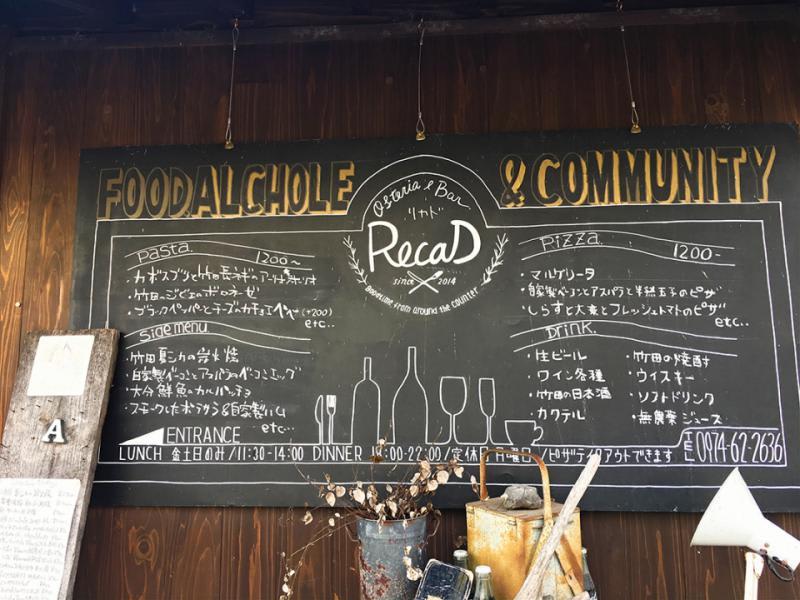 FOOD.ALCHOLE
& COMMUNITY
Osteria e Bar
リカド
RecaD
since 2014
around the counter
Pasta. 1200~
・ブラックペッパーとチーズのカチョエペペ (+200)
etc...
side menu
・竹田夏シカの炭火焼
・自家製ベーコンとアスパラのベーコンエッグ
・大分鮮魚のカルパッチョ
・スモークしたポテサラ&自家製ハム
etc...
Pizza. 1200-
・マルゲリータ
・自家製ベーコンとアスパラと半熟玉子のピザ
・しらすと大葉とフレッシュトマトのピザ
etc...
Drink.
・生ビール
・ワイン各種
・竹田の日本酒
・カクテル
・竹田の焼酎
・ウイスキー
・ソフトドリンク
・無農薬ジュース
ENTRANCE
LUNCH 金土日のみ/11:30-14:00 DINNER 18:00-22:00/定休 月曜日/ピザテイクアウトできます
TEL 0974-62-2636
A